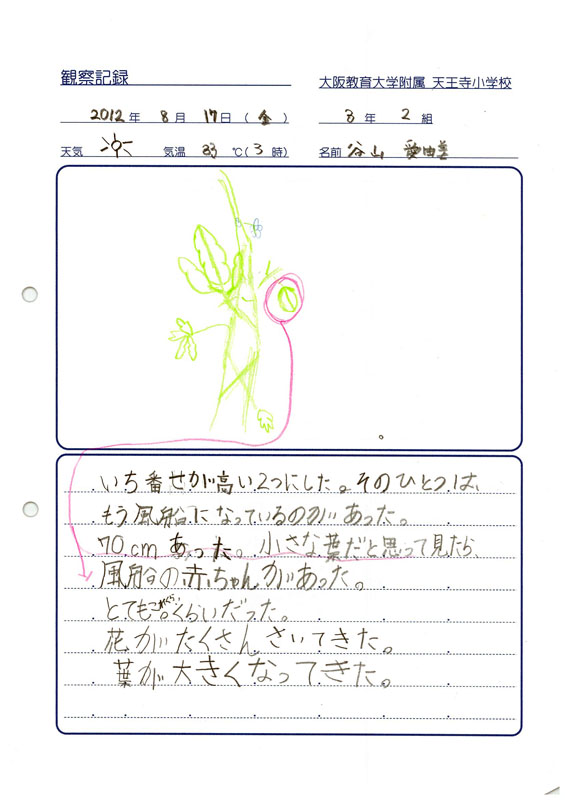 観察記録
大阪教育大学附属 天王寺小学校
2012年 8月 17日(金)
3年 2組
天気 気温 33℃(3時)
名前 谷山
いち番せが高い2つにした。そのひとつは、
もう風船になっているのがあった。
70cmあった。小さな葉だと思って見たら、
風船の赤ちゃんがあった。
とても くらいだった。
花がたくさんさいてきた。
葉が大きくなってきた。